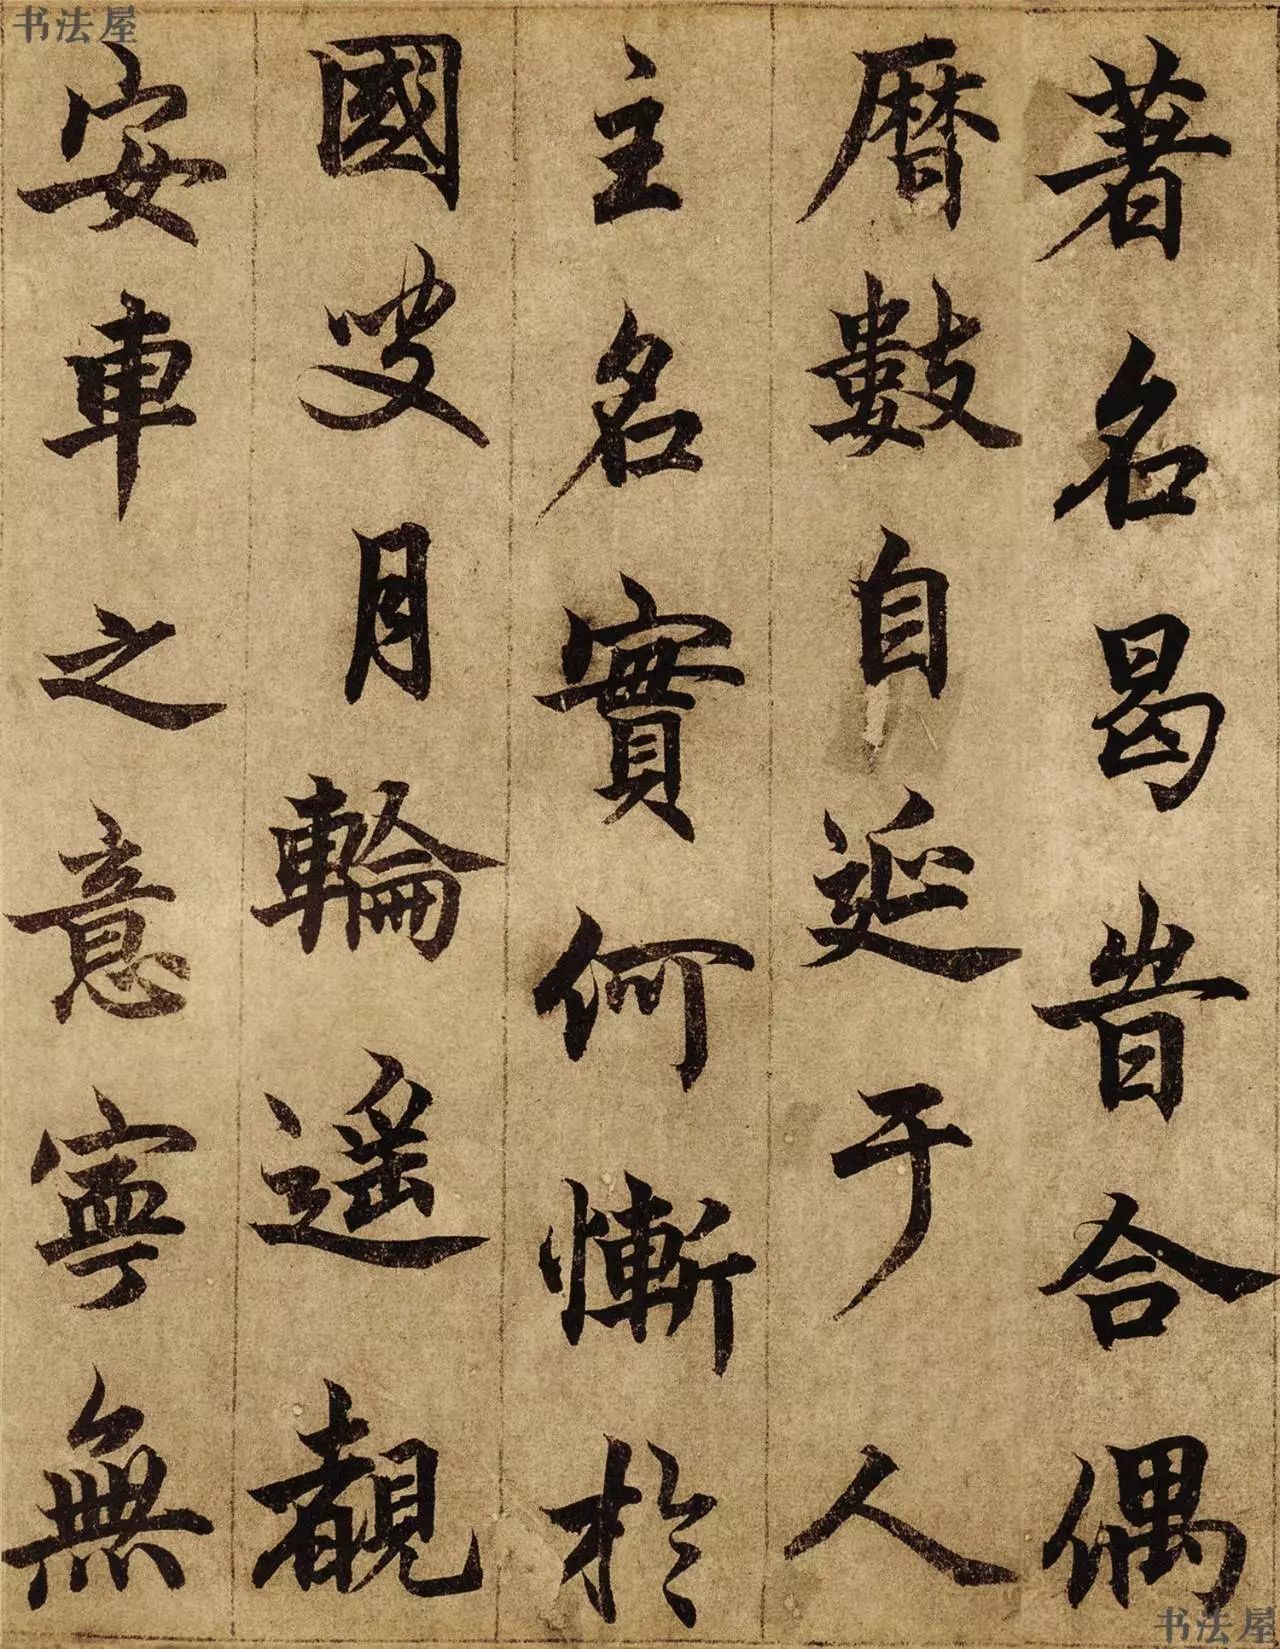 书法屋
著名曷旹合偶
曆數自延于人
主名實何慚於
國叟月輪遙覩
安車之意寧無
书法屋